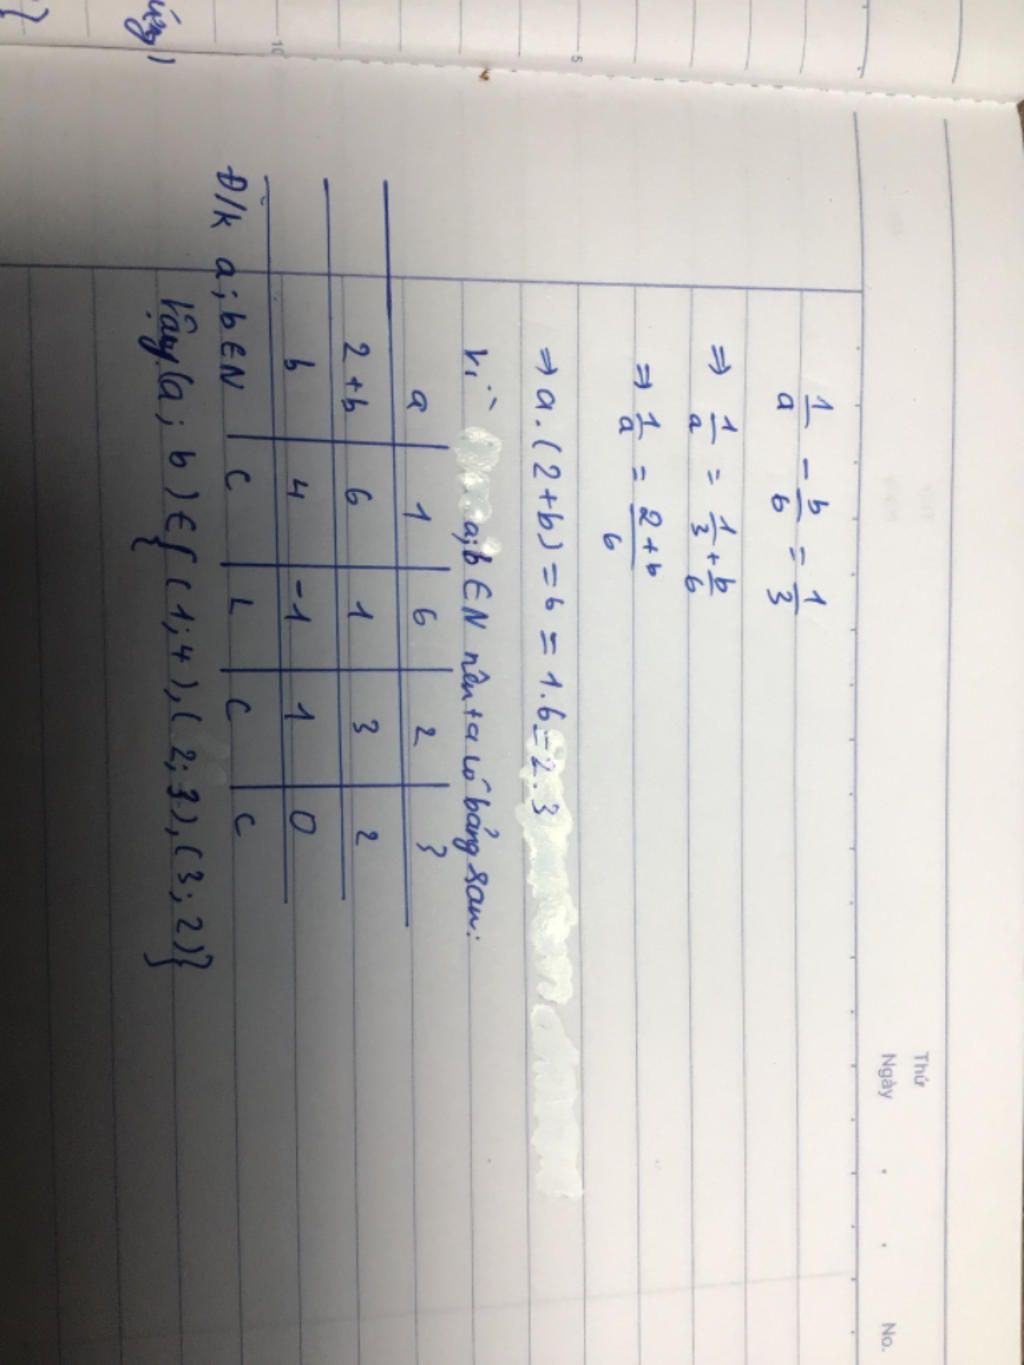 Thứ
Ngày . . No.
1/a - b/6 = 1/3
⇒ 1/a = 1/3 + b/6
⇒ 1/a = 2+b/6
⇒ a.(2+b) = 6 = 1.6 = 2.3
Vì a;b ∈ N nên ta có bảng sau:
a 1 6 2 3
2+b 6 1 3 2
b 4 -1 1 0
Đ/k a;b ∈ N C L C C
Vậy (a;b) ∈ {(1;4),(2;3),(3;2)}
5
10